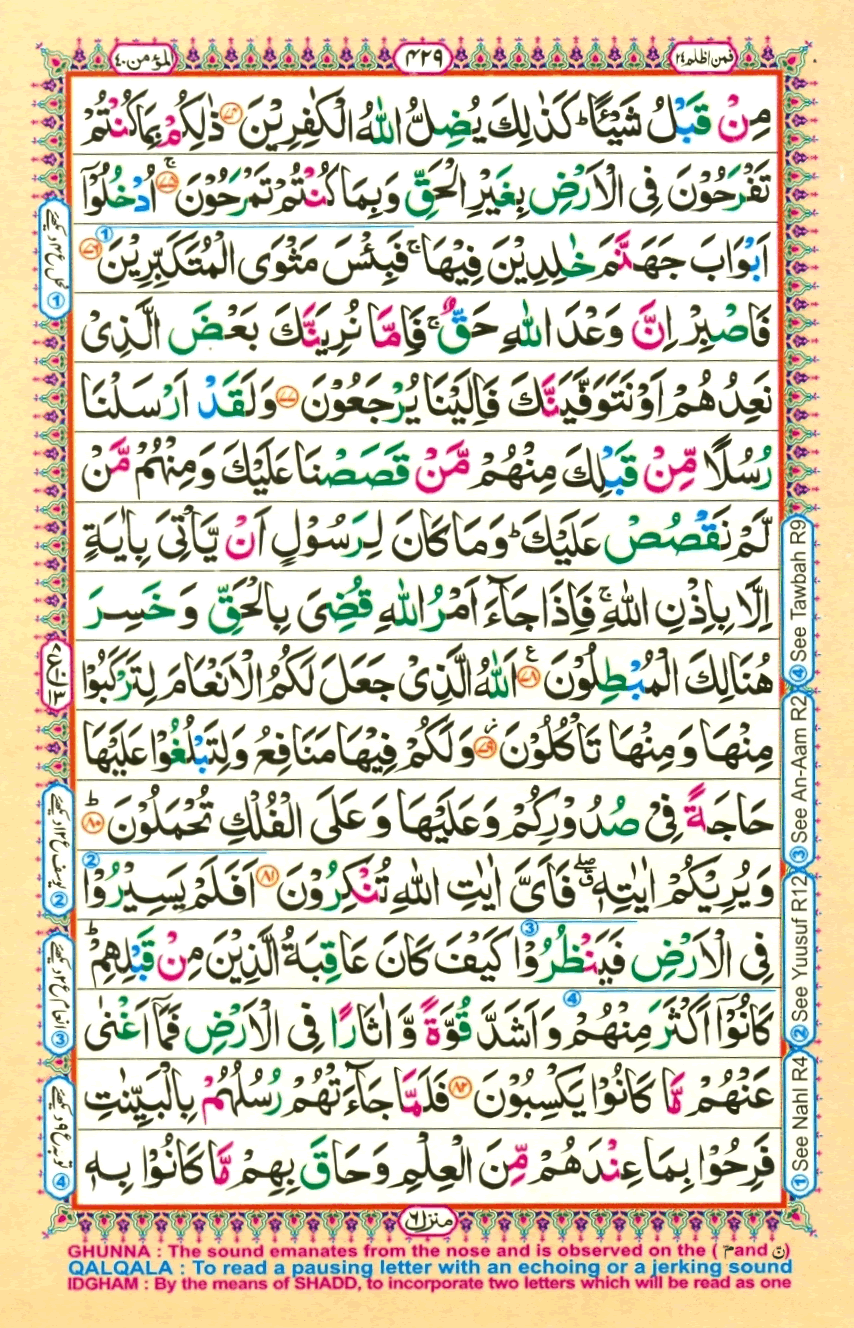 فمن اظلم ٢٤
٤٢٩
المؤمن ٤٠
مِنْ قَبْلُ شَيْـًٔا ؕ كَذٰلِكَ يُضِلُّ اللّٰهُ الْكٰفِرِيْنَ ﴿۷۴﴾ ذٰلِكُمْ بِمَا كُنْتُمْ
تَفْرَحُوْنَ فِى الْاَرْضِ بِغَيْرِ الْحَقِّ وَبِمَا كُنْتُمْ تَمْرَحُوْنَ ۚ﴿۷۵﴾ اُدْخُلُوْۤا
اَبْوَابَ جَهَنَّمَ خٰلِدِيْنَ فِيْهَا ۚ فَبِئْسَ مَثْوَى الْمُتَكَبِّرِيْنَ ﴿۷۶﴾ ①
فَاصْبِرْ اِنَّ وَعْدَ اللّٰهِ حَقٌّ ۚ فَاِمَّا نُرِيَنَّكَ بَعْضَ الَّذِىْ
نَعِدُهُمْ اَوْ نَتَوَفَّيَنَّكَ فَاِلَيْنَا يُرْجَعُوْنَ ﴿۷۷﴾ وَلَقَدْ اَرْسَلْنَا
رُسُلًا مِّنْ قَبْلِكَ مِنْهُمْ مَّنْ قَصَصْنَا عَلَيْكَ وَمِنْهُمْ مَّنْ
لَّمْ نَقْصُصْ عَلَيْكَ ؕ وَمَا كَانَ لِرَسُوْلٍ اَنْ يَّاْتِىَ بِاٰيَةٍ
اِلَّا بِاِذْنِ اللّٰهِ ۚ فَاِذَا جَآءَ اَمْرُ اللّٰهِ قُضِىَ بِالْحَقِّ وَخَسِرَ
هُنَالِكَ الْمُبْطِلُوْنَ ﴿۷۸﴾ ع اَللّٰهُ الَّذِىْ جَعَلَ لَكُمُ الْاَنْعَامَ لِتَرْكَبُوْا
مِنْهَا وَمِنْهَا تَاْكُلُوْنَ ۫﴿۷۹﴾ وَلَكُمْ فِيْهَا مَنَافِعُ وَلِتَبْلُغُوْا عَلَيْهَا
حَاجَةً فِىْ صُدُوْرِكُمْ وَعَلَيْهَا وَعَلَى الْفُلْكِ تُحْمَلُوْنَ ؕ﴿۸۰﴾
وَيُرِيْكُمْ اٰيٰتِهٖ ۖۗ فَاَىَّ اٰيٰتِ اللّٰهِ تُنْكِرُوْنَ ﴿۸۱﴾ ② اَفَلَمْ يَسِيْرُوْا
فِى الْاَرْضِ فَيَنْظُرُوْا ③ كَيْفَ كَانَ عَاقِبَةُ الَّذِيْنَ مِنْ قَبْلِهِمْ ؕ
كَانُوْۤا اَكْثَرَ مِنْهُمْ ④ وَاَشَدَّ قُوَّةً وَّاٰثَارًا فِى الْاَرْضِ فَمَاۤ اَغْنٰى
عَنْهُمْ مَّا كَانُوْا يَكْسِبُوْنَ ﴿۸۲﴾ فَلَمَّا جَآءَتْهُمْ رُسُلُهُمْ بِالْبَيِّنٰتِ
فَرِحُوْا بِمَا عِنْدَهُمْ مِّنَ الْعِلْمِ وَحَاقَ بِهِمْ مَّا كَانُوْا بِهٖ
منزل ٦
① See Nahl R4
② See Yuusuf R12
③ See An-Aam R2
④ See Tawbah R9
① نحل ع ٤ دیکھئے
② یوسف ع ١٢ دیکھئے
③ انعام ع ٢ دیکھئے
④ توبہ ع ٩ دیکھئے
GHUNNA : The sound emanates from the nose and is observed on the ( مّ and نّ )
QALQALA : To read a pausing letter with an echoing or a jerking sound
IDGHAM : By the means of SHADD, to incorporate two letters which will be read as one